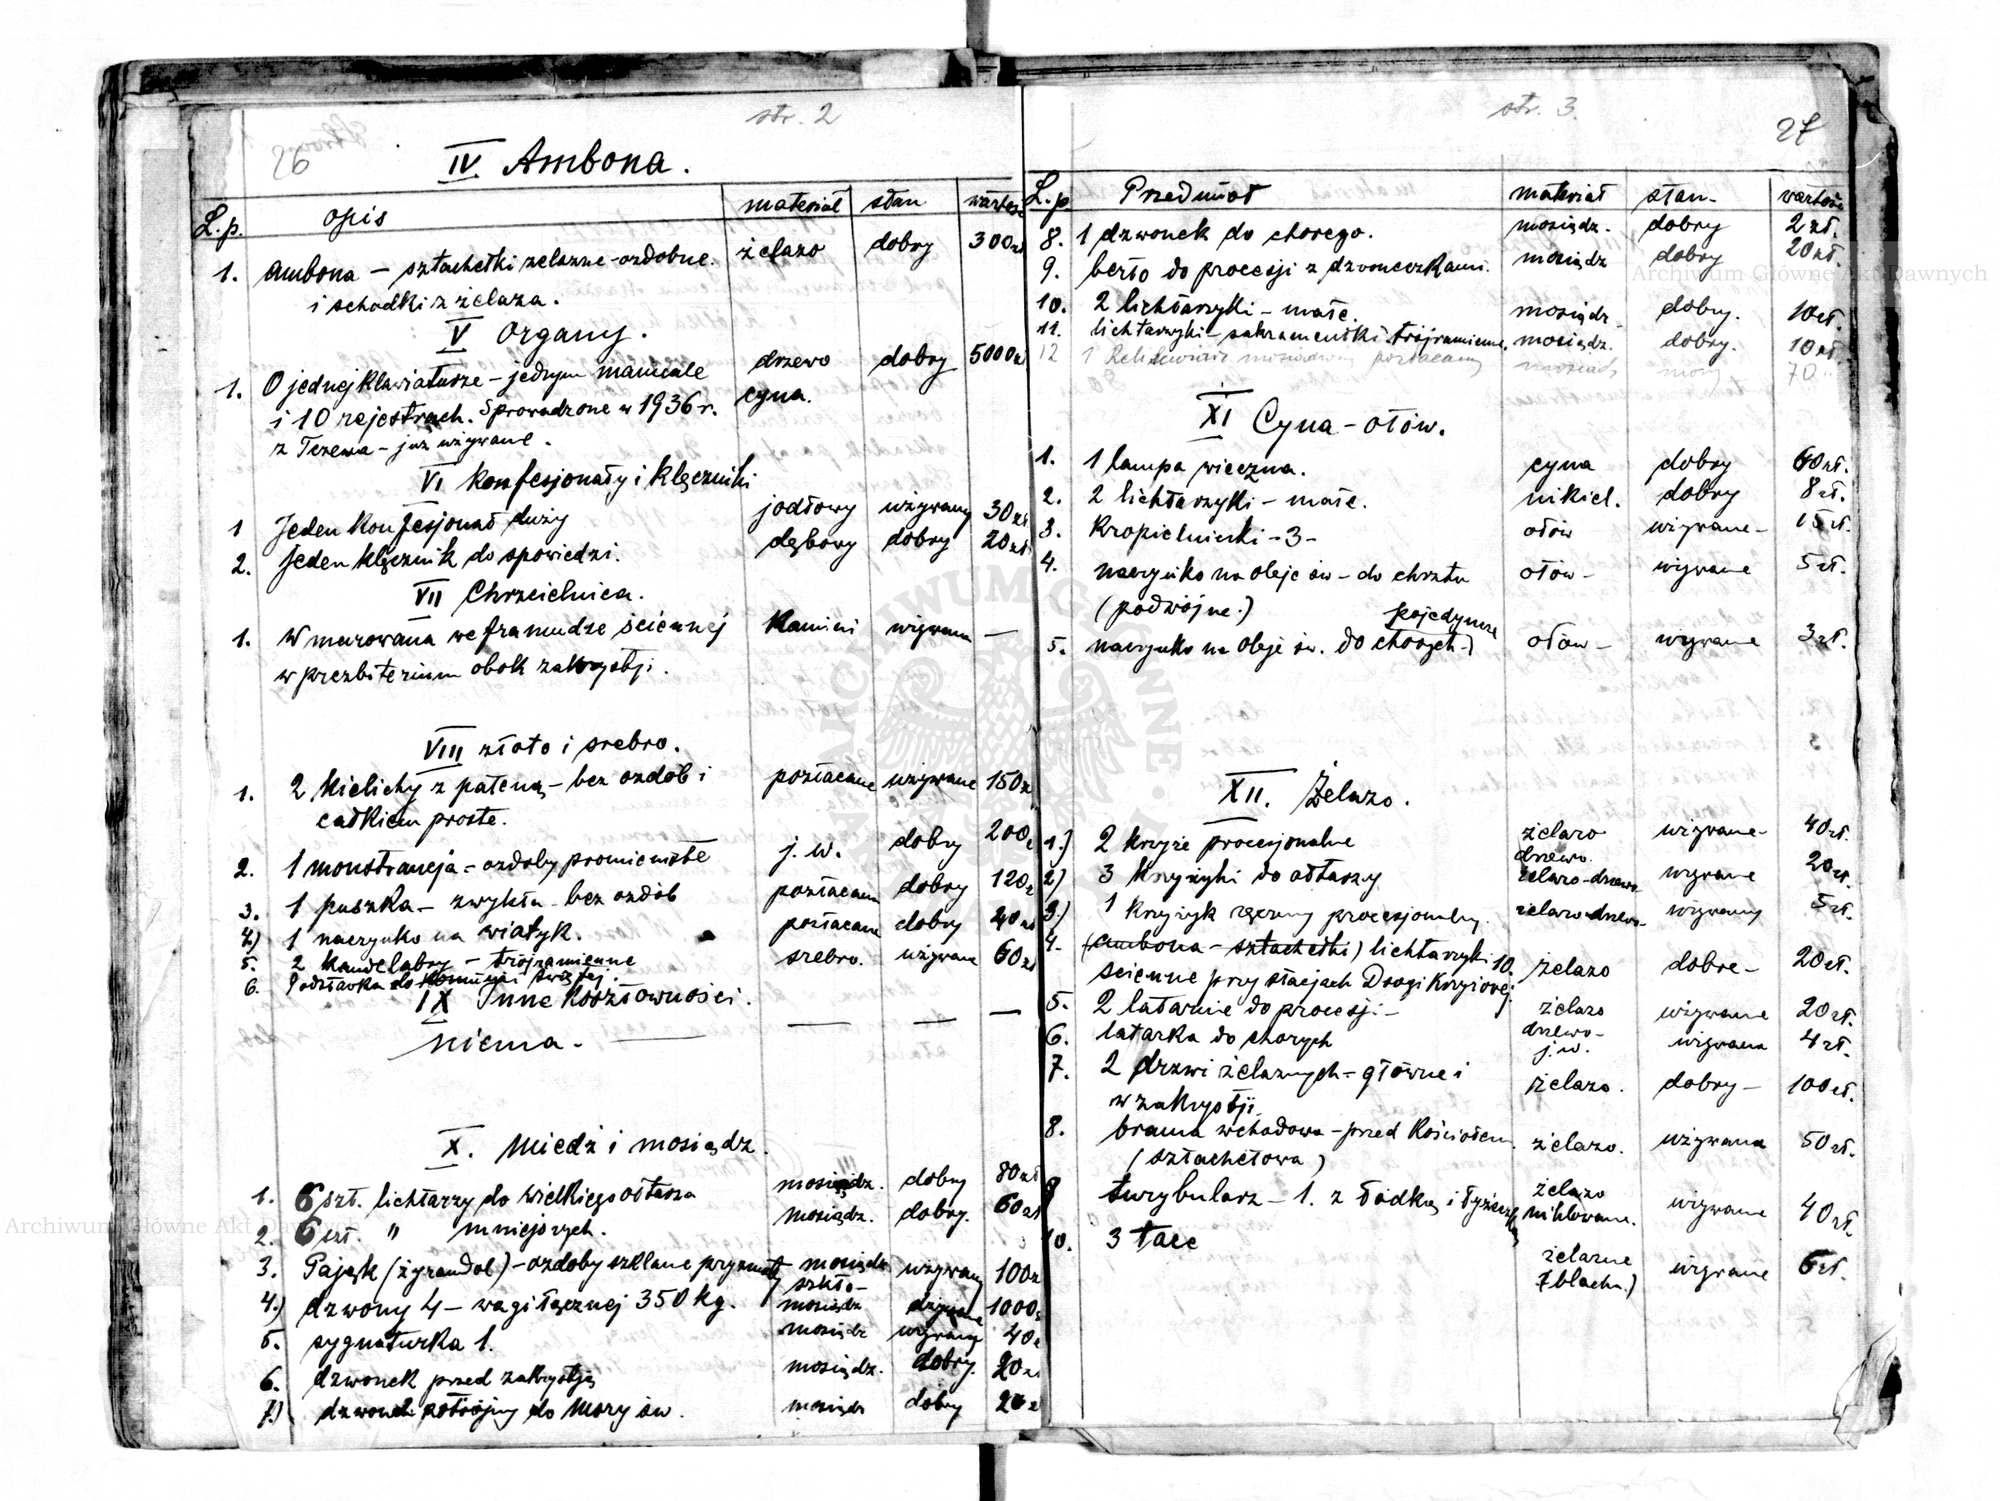 str. 2
26
IV Ambona.
L.p. opis materiał stan wartość
1. Ambona – sztachetki żelazne – ozdobne. żelazo dobry 300 zł
i schodki z żelaza.
V Organy.
1. O jednej klawiaturze – jednym manuale drzewo dobry 5000 zł
i 10 rejestrach. Sprowadzone w 1936 r. cyna.
z Tczewa – już używane.
VI Konfesjonały i klęczniki
1 Jeden konfesjonał duży jodłowy używany 30 zł
2. Jeden klęcznik do spowiedzi. dębowy dobry 20 zł
VII Chrzcielnica.
1. Wmurowana we framudze ściennej kamień używana –
w prezbiterium obok zakrystji.
VIII złoto i srebro.
1. 2 kielichy z pateną – bez ozdób i pozłacane używane 150 zł
całkiem proste.
2. 1 monstrancja – ozdoby promieniste j.w. dobry 200 z
3. 1 puszka – zwykła – bez ozdób pozłacana dobry 120 z
4) 1 naczynko na wiatyk. pozłacane dobry 40 zł
5. 2 kandelabry – trójramienne srebro. używane 60 zł
6. Podstawka do Komunji świętej.
IX Inne kosztowności.
niema. – — — —
X. Miedź i mosiądz.
1. 6 szt. lichtarzy do wielkiego ołtarza mosiądz. dobry 80 zł
2. 6 szt. " mniejszych. mosiądz. dobry. 60 zł
3. Pająk (żyrandol) – ozdoby szklane pryzmaty mosiądz używany 100 z
szkło –
4.) dzwony 4 – wagi łącznej 350 kg. mosiądz 1000 z
5. sygnaturka 1. mosiądz używany 40 z
6. dzwonek przed zakrystją mosiądz. dobry. 20 zł
7.) dzwonek potrójny do Mszy św. mosiądz dobry 20 z
str. 3.
27
L.p. Przedmiot materiał stan – wartość
8. 1 dzwonek do chorego. mosiądz. dobry 2 zł.
9. berło do procesji z dzwoneczkami. mosiądz dobry 20 zł.
10. 2 lichtarzyki – małe. mosiądz dobry. 10 zł.
11. lichtarzyki – sakramentki trójramienne. mosiądz. dobry. 10 zł.
12 1 Relikwiarz mosiężny pozłacany mosiądz 70 "
XI Cyna – ołów.
1. 1 lampa wieczna. cyna dobry 60 zł.
2. 2 lichtarzyki – małe. nikiel. dobry 8 zł.
3. Kropielniczki – 3 – ołów używane – 15 zł.
4. naczynko na oleje św – do chrztu ołów – używane 5 zł.
(podwójne.)
pojedyncze
5. naczynko na oleje św. do chorych –) ołów – używane 3 zł.
XII. Żelazo.
1.) 2 krzyże procesjonalne żelazo używane – 40 zł.
drzewo.
2) 3 krzyżyki do ołtarzy żelazo – drzewo używane 20 zł.
3.) 1 krzyżyk ręczny procesjonalny. żelazo drzewo – używany 5 zł.
4. (ambona – sztachetki) lichtarzyki 10. żelazo dobre – 20 zł.
ścienne przy stacjach Drogi Krzyżowej
5. 2 latarnie do procesji – żelazo używane 20 zł.
drzewo –
6. latarka do chorych j.w. używana 4 zł.
7. 2 drzwi żelaznych – główne i żelazo. dobry – 100 zł.
w zakrystji.
8. brama wchodowa – przed Kościołem żelazo. używana 50 zł.
(sztachetowa)
9 turybularz – 1. z łódką i łyżeczką żelazo używane 40 zł.
niklowane.
10. 3 tace żelazne używane 6 zł.
(blacha.)
Archiwum Główne Akt Dawnych
Archiwum Główne Akt Dawnych
ARCHIWUM GŁÓWNE